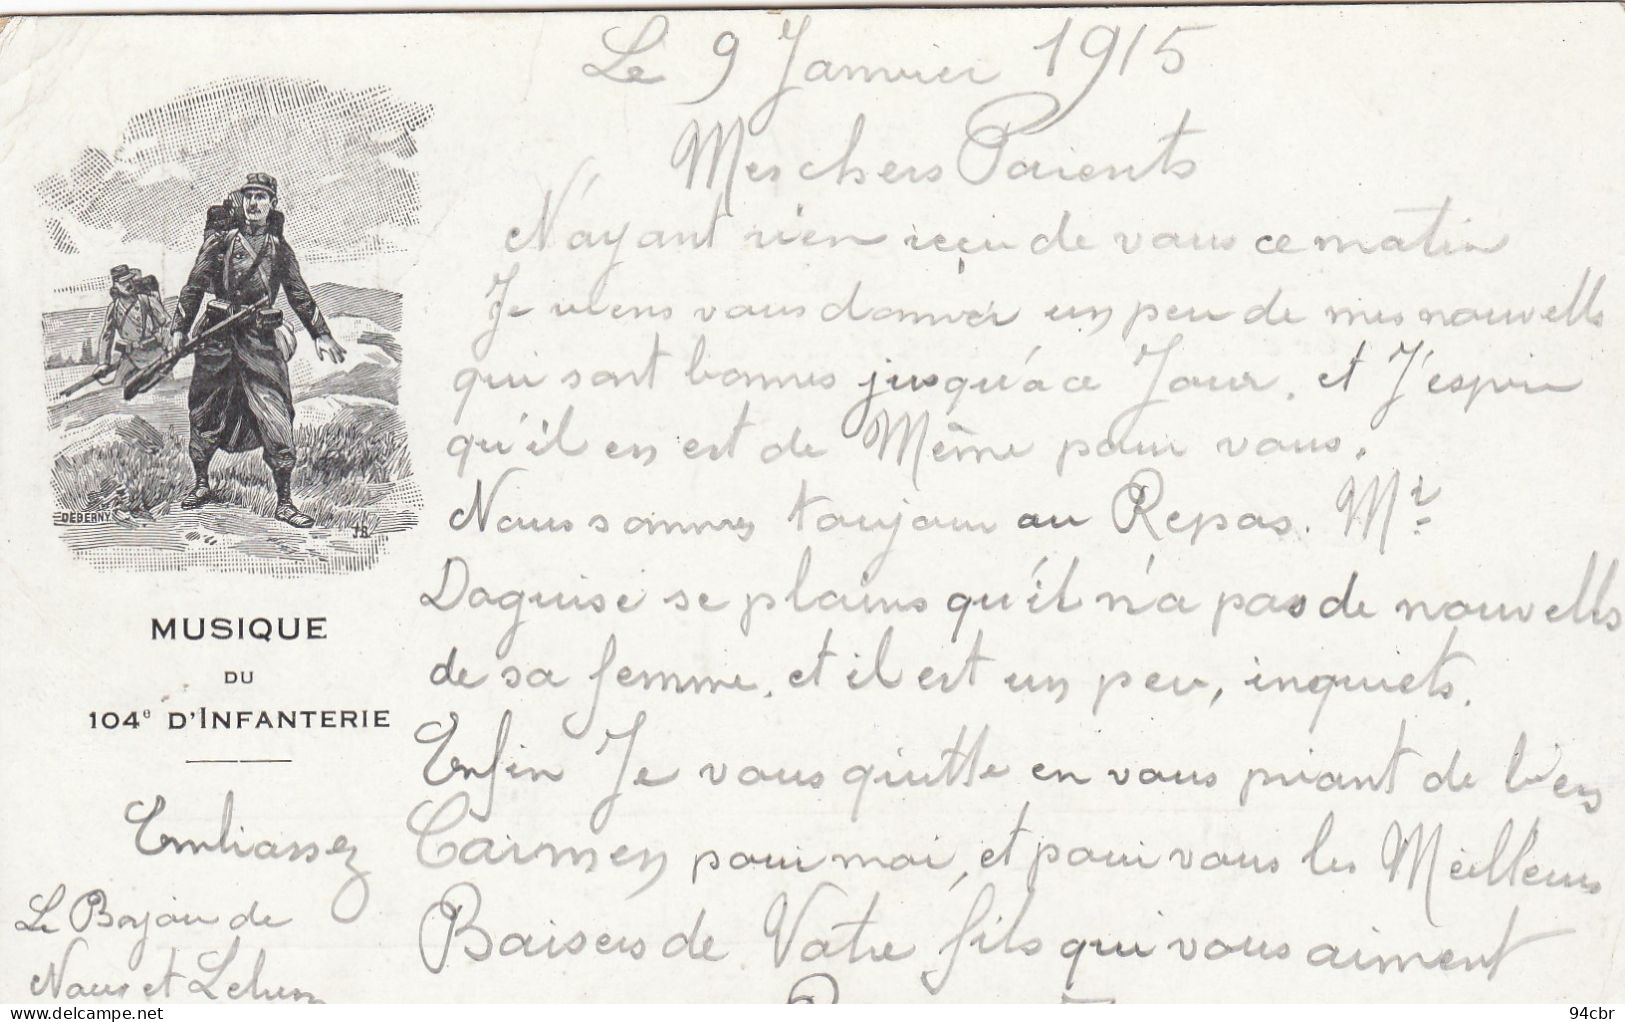 Le 9 Janvier 1915
Mes chers Parents
N'ayant rien reçu de vous ce matin
Je viens vous donner un peu de mes nouvells
qui sont bonnes jusqu'à ce Jour, et J'espire
qu'il en est de Même pour vous.
Nous sommes toujour au Repas. Mr
Daguise se plains qu'il n'a pas de nouvells
de sa femme, et il est un peu, inquiets.
Enfin Je vous quitte en vous priant de
Carmen pour moi, et pour vous les Meilleurs
Baisers de Votre fils qui vous aiment
DEBERNY
MUSIQUE
DU
104e D'INFANTERIE
Embrassez
Le de
Nous et
94cbr